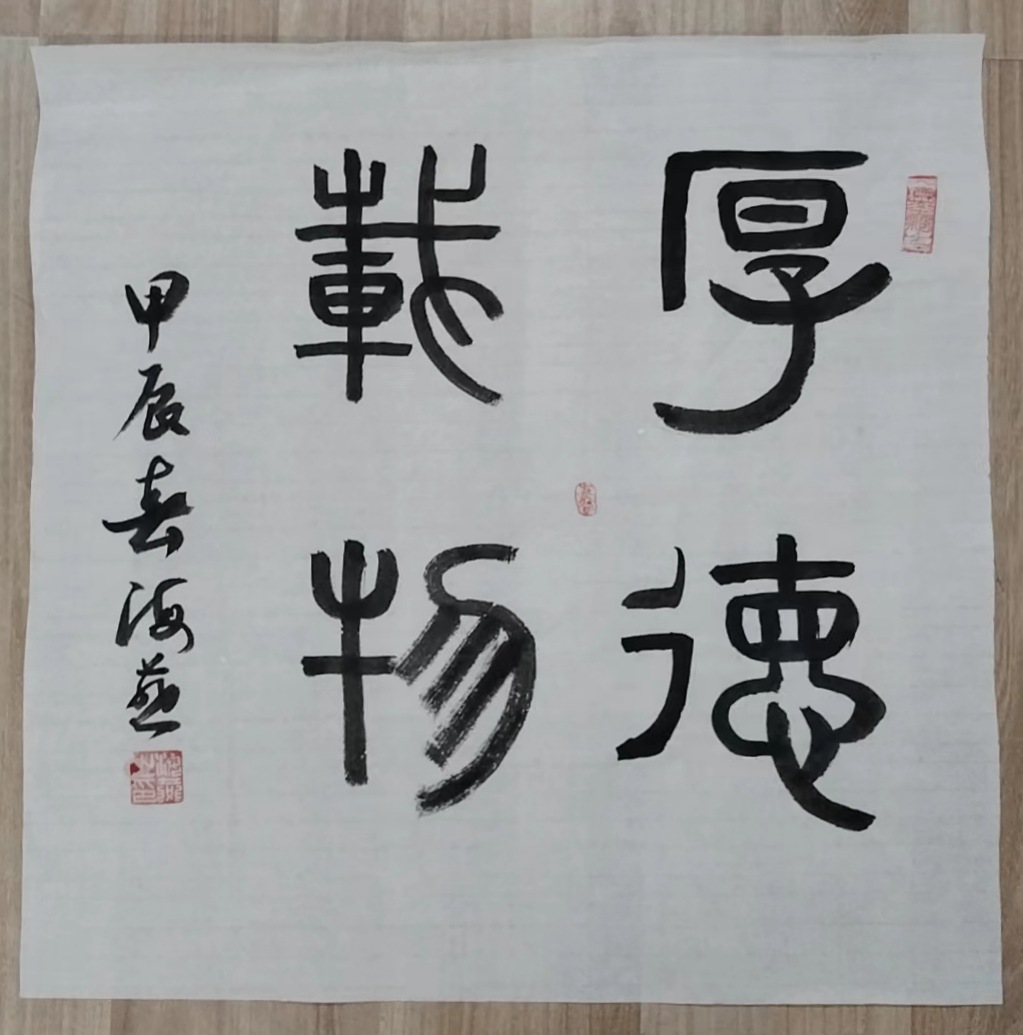 厚德
載物
甲辰春海燕